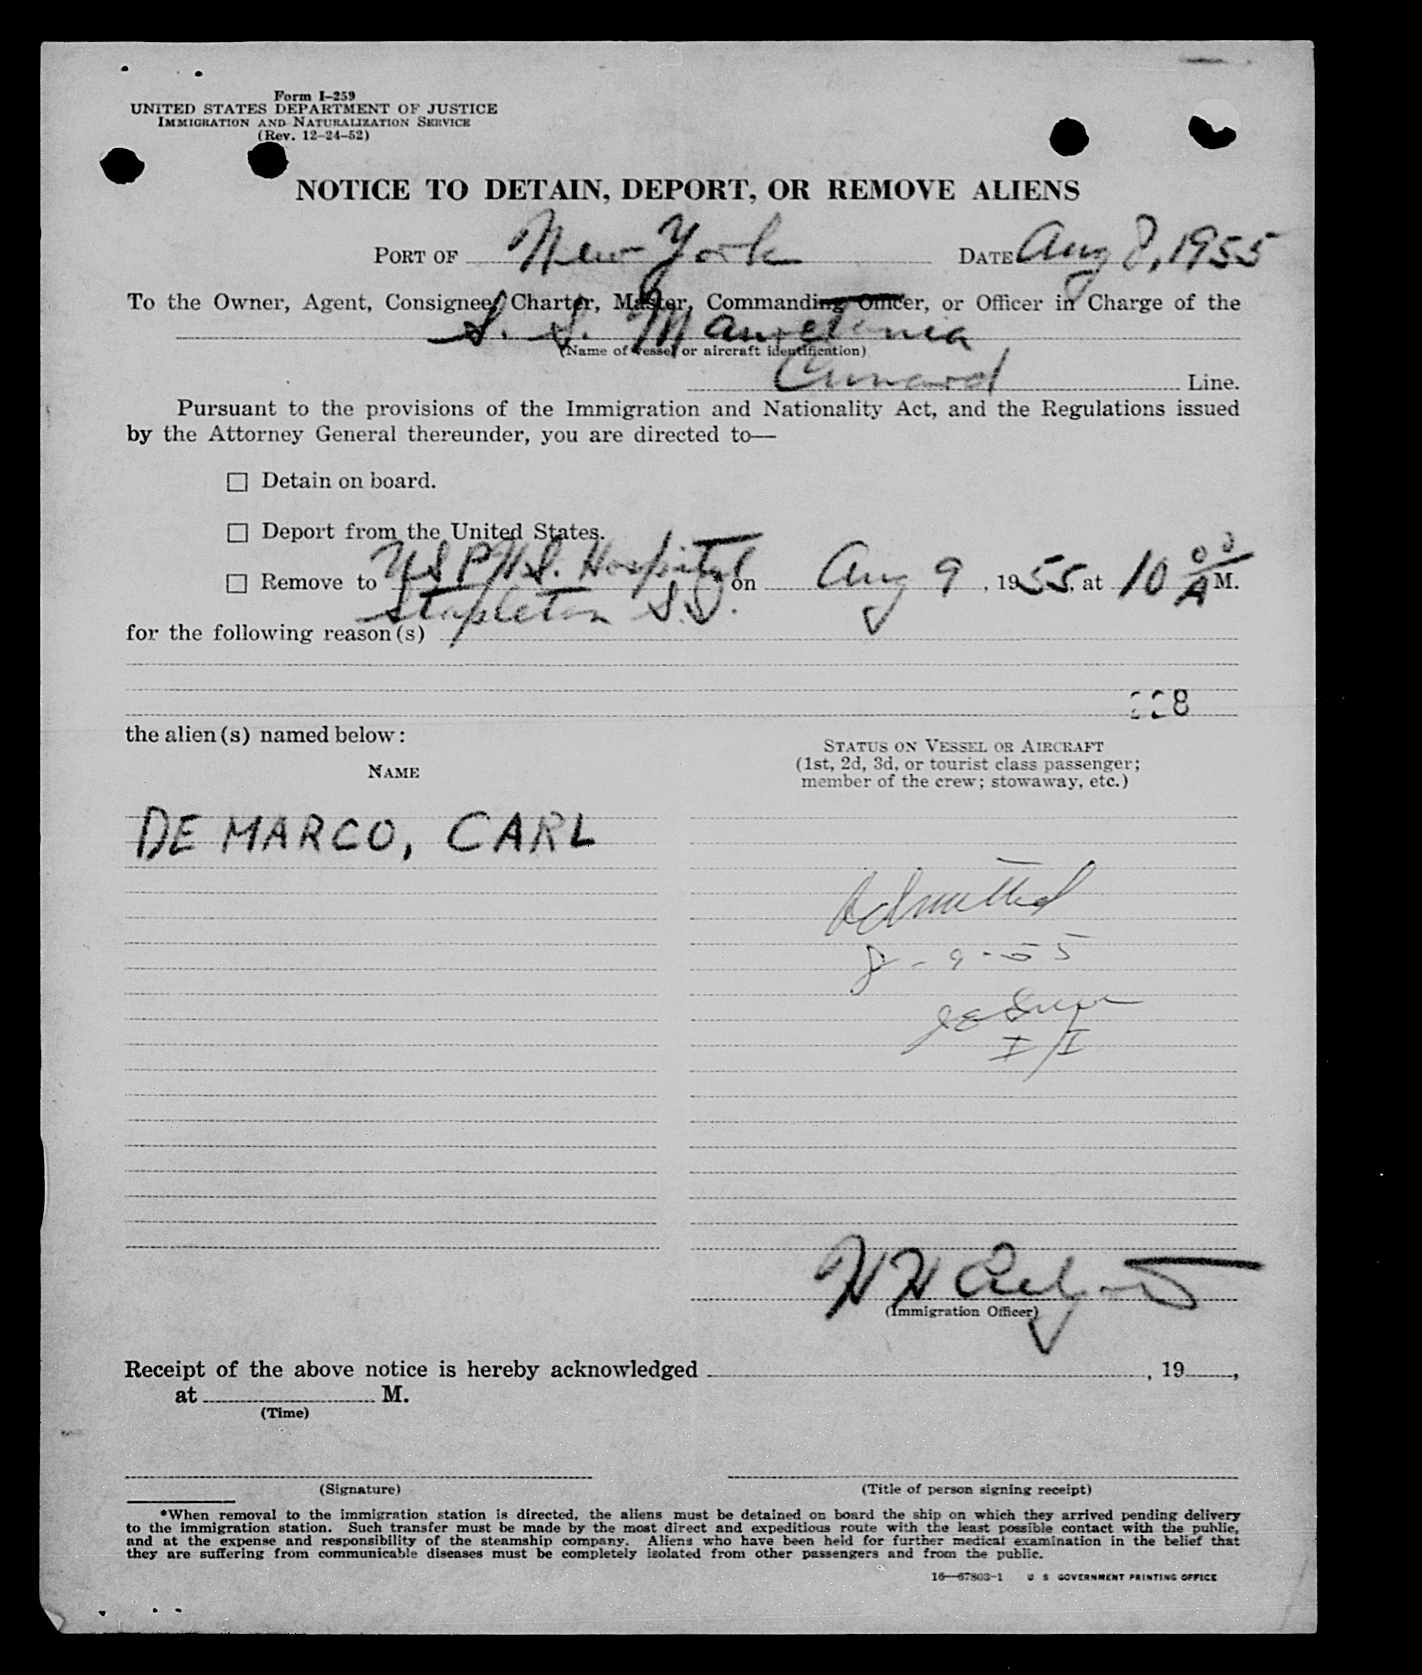 Form I-259
UNITED STATES DEPARTMENT OF JUSTICE
IMMIGRATION AND NATURALIZATION SERVICE
(Rev. 12-24-52)
NOTICE TO DETAIN, DEPORT, OR REMOVE ALIENS
PORT OF New York DATE Aug 8, 1955
To the Owner, Agent, Consignee, Charter, Master, Commanding Officer, or Officer in Charge of the
S. S. Mauretania
(Name of vessel or aircraft identification)
Cunard Line.
Pursuant to the provisions of the Immigration and Nationality Act, and the Regulations issued
by the Attorney General thereunder, you are directed to—
☐ Detain on board.
☐ Deport from the United States.
☐ Remove to USPHS. Hospital on Aug 9, 1955, at 10 00 A M.
Stapleton S.I.
for the following reason(s)
the alien(s) named below:
NAME
STATUS ON VESSEL OR AIRCRAFT
(1st, 2d, 3d, or tourist class passenger;
member of the crew; stowaway, etc.)
DE MARCO, CARL
Admitted
8-9-55
I/I
H H
(Immigration Officer)
Receipt of the above notice is hereby acknowledged , 19 ,
at M.
(Time)
(Signature)
(Title of person signing receipt)
*When removal to the immigration station is directed, the aliens must be detained on board the ship on which they arrived pending delivery
to the immigration station. Such transfer must be made by the most direct and expeditious route with the least possible contact with the public,
and at the expense and responsibility of the steamship company. Aliens who have been held for further medical examination in the belief that
they are suffering from communicable diseases must be completely isolated from other passengers and from the public.
16—67803-1 U S GOVERNMENT PRINTING OFFICE